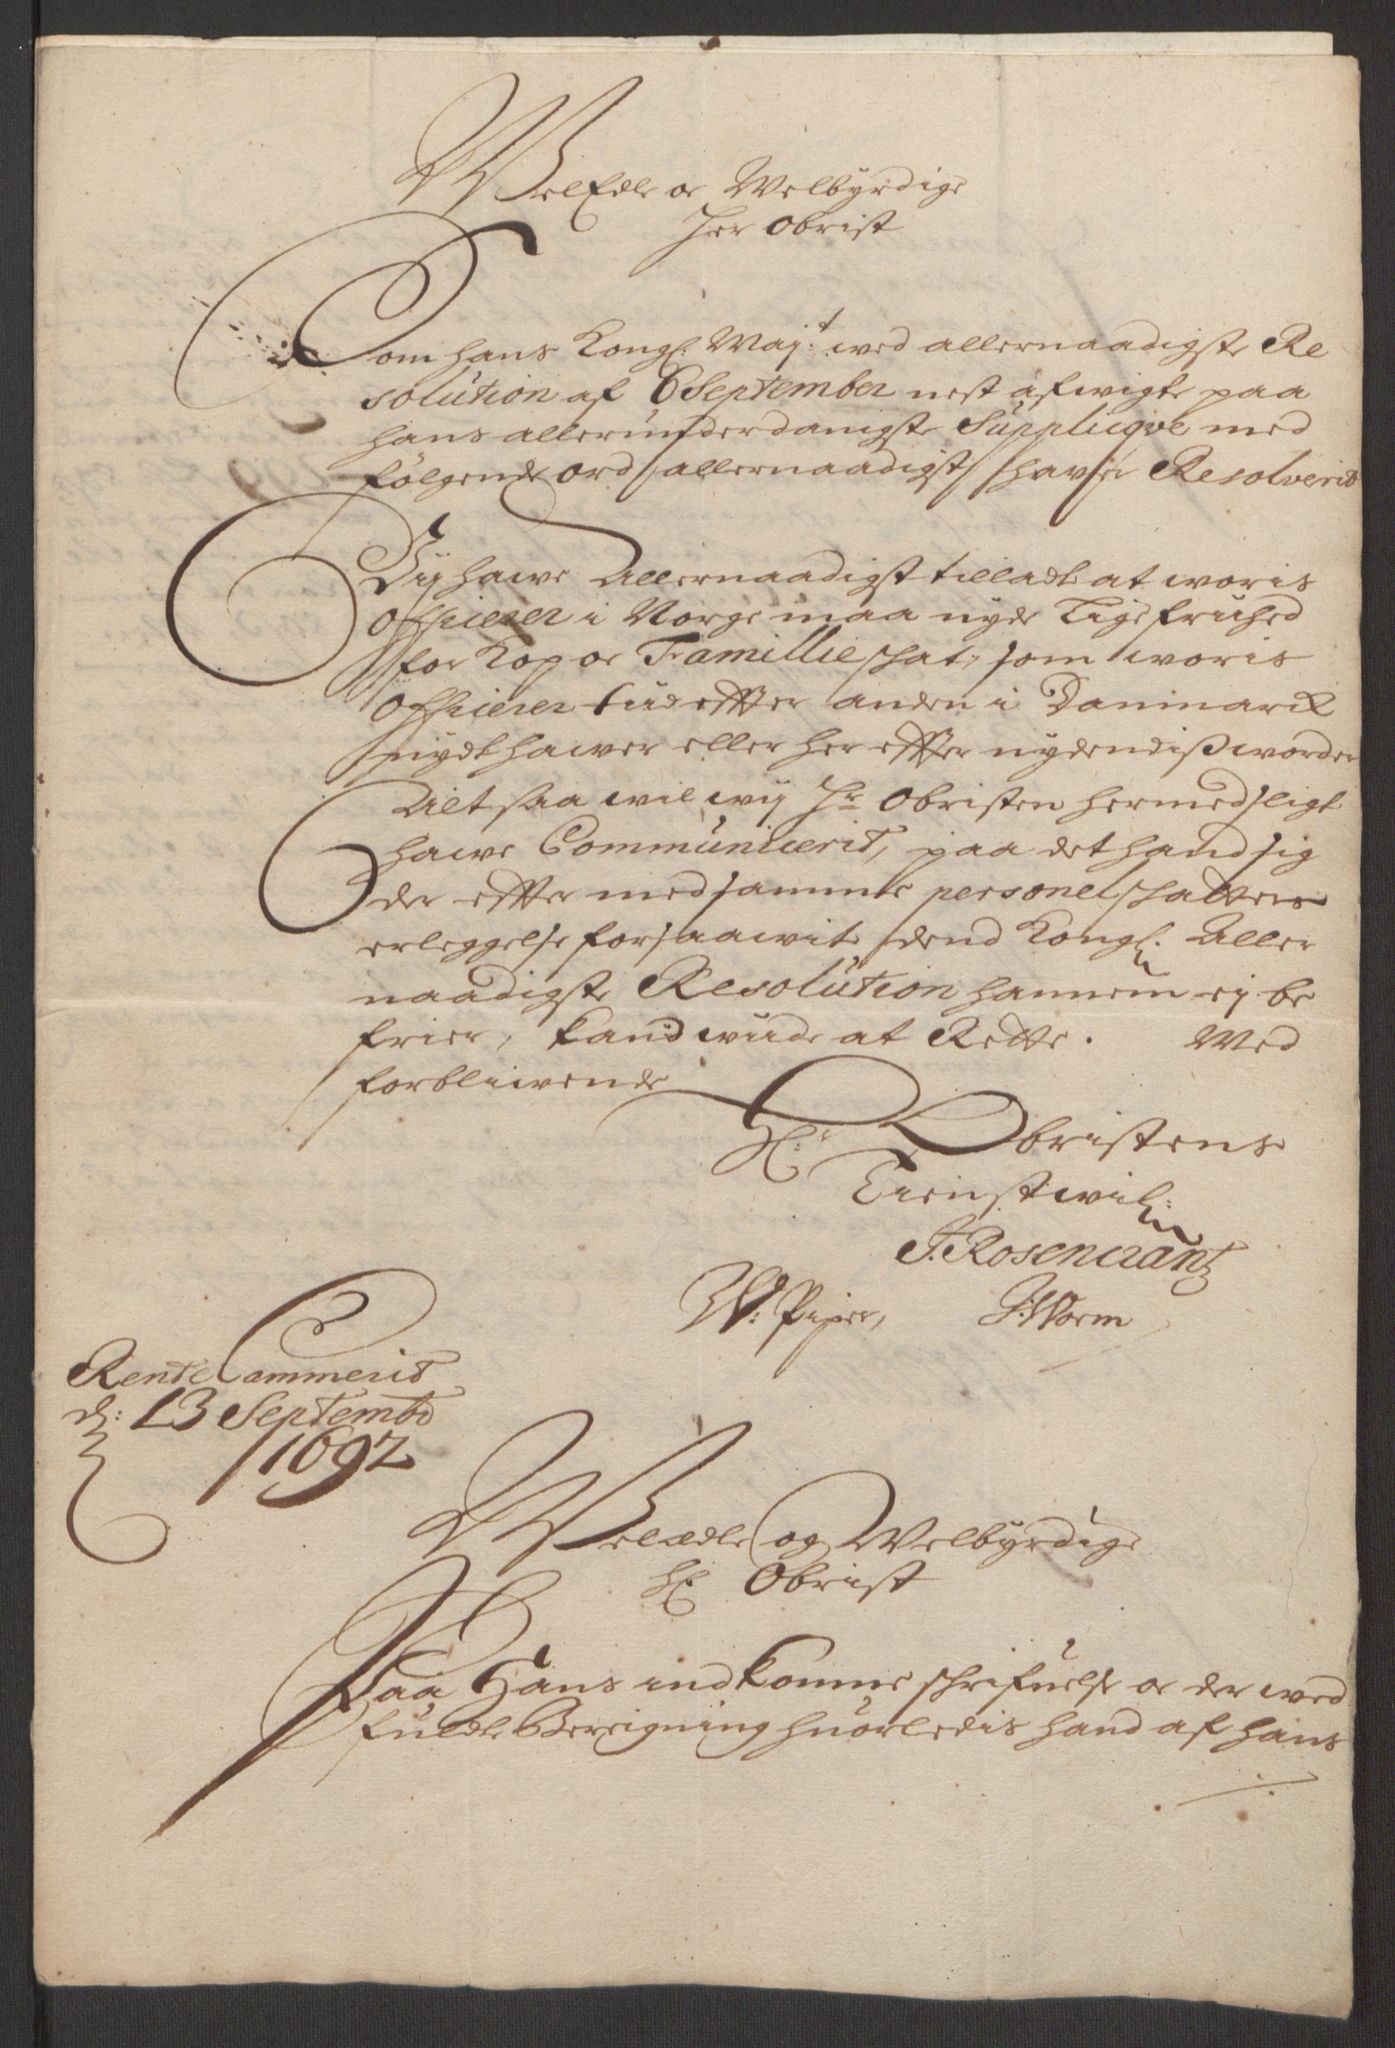 WelEdle oc Welbÿrdige
Her Obrist
Som hans Kongl: Maj:t wed allernaadigste Re
solution af 6 September nest afwigte paa
hans allerunderdanigste Supplicqve med
følgende ord allernaadigst hawer Resolverit
Wij hawe Allernaadigst tilladt at woris
Officerer i Norge maa nyde lige friihed
for Kop oc Famillie schat, som woris
Officerer tid effter anden i Danmarck
nydt hawer eller her effter nydendis worder
Alt saa wil wij Hr Obristen hermed sligt
hawe Communicerit, paa det hand sig
der effter med samme personel schattens
erleggelse forsaawit dend Kongl. Aller
naadigste Resolution hannem ej be
frier, kand wide at Rette. Med
forbliwende
Hr: Obristens
Tienstwil:
J. Rosencrantz
W: Pijper, J: Worm
RenteCammerit
d: 13 Septembr
1692
Weledle og Welbyrdige
Hr Obrist
Paa Hans indkomne schrifuelse oc der wed
fulde Beregning huorledis hand af hans